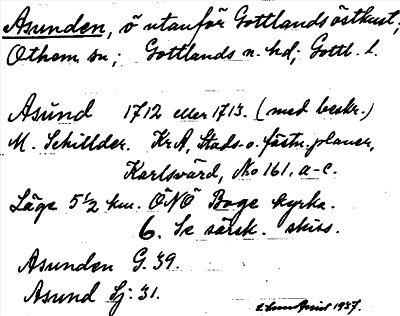 Asunden, ö utanför Gottlands östkust,
Othem sn; Gottlands n. hd; Gottl. l.
Asund 1712 eller 1713. (med beskr.)
M. Schillder. KrA, Stads- o. fästn. planer,
Karlsvärd, No 161, a-c.
Läge 5 1/2 km. ÖNÖ Boge kyrka.
6. Se särsk. skiss.
Asunden G. 39.
Asund Sj: 31.
1937.